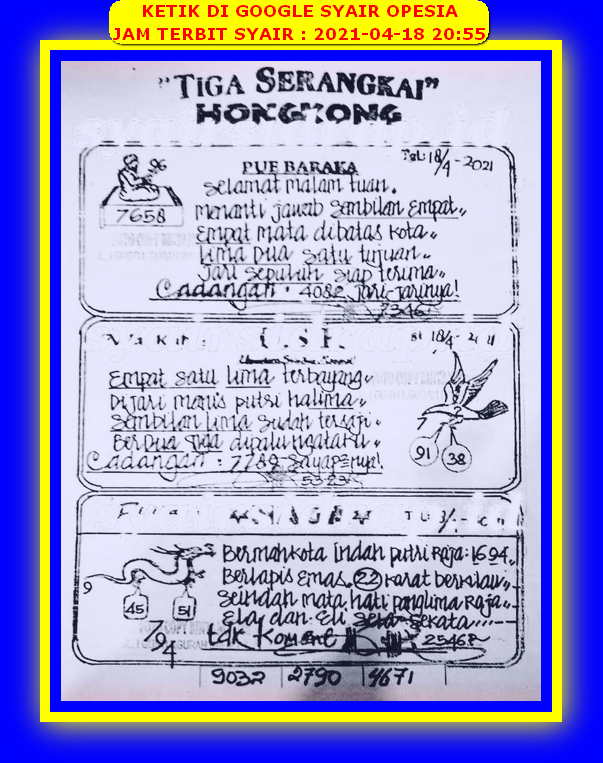 KETIK DI GOOGLE SYAIR OPESIA
JAM TERBIT SYAIR : 2021-04-18 20:55
"TIGA SERANGKAI"
HONGKONG
PUE BARAKA
Tgl: 18/4 - 2021
96
7658
Selamat malam tuan.
Menanti jawab Sembilan Empat..
Empat mata dibatas kota..
Lima Dua Satu tujuan..
Jari Sepuluh Siap terima..
Cadangan : 4082 Jari-Jarinya!
2346
18/4 -
Empat Satu lima terbayang..
Dijari manis putri halima..
Sembilan lima Sudah tersaji..
BerDua tiga
Cadangan : 7789 Sayap2nya!
91 38
Bermahkota Indah putri Raja: 1694..
Berlapis Emas. 22 karat berkilau..
Seindah mata hati panglima Raja..
Ela dan Eli Seia Sekata
tdk Koment
9
45 51
794
9032 2790 4671